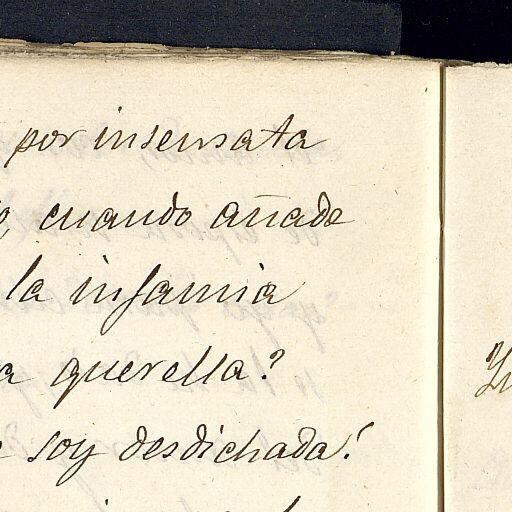 por insensata
cuando añade
la infamia
querella?
soy desdichada!